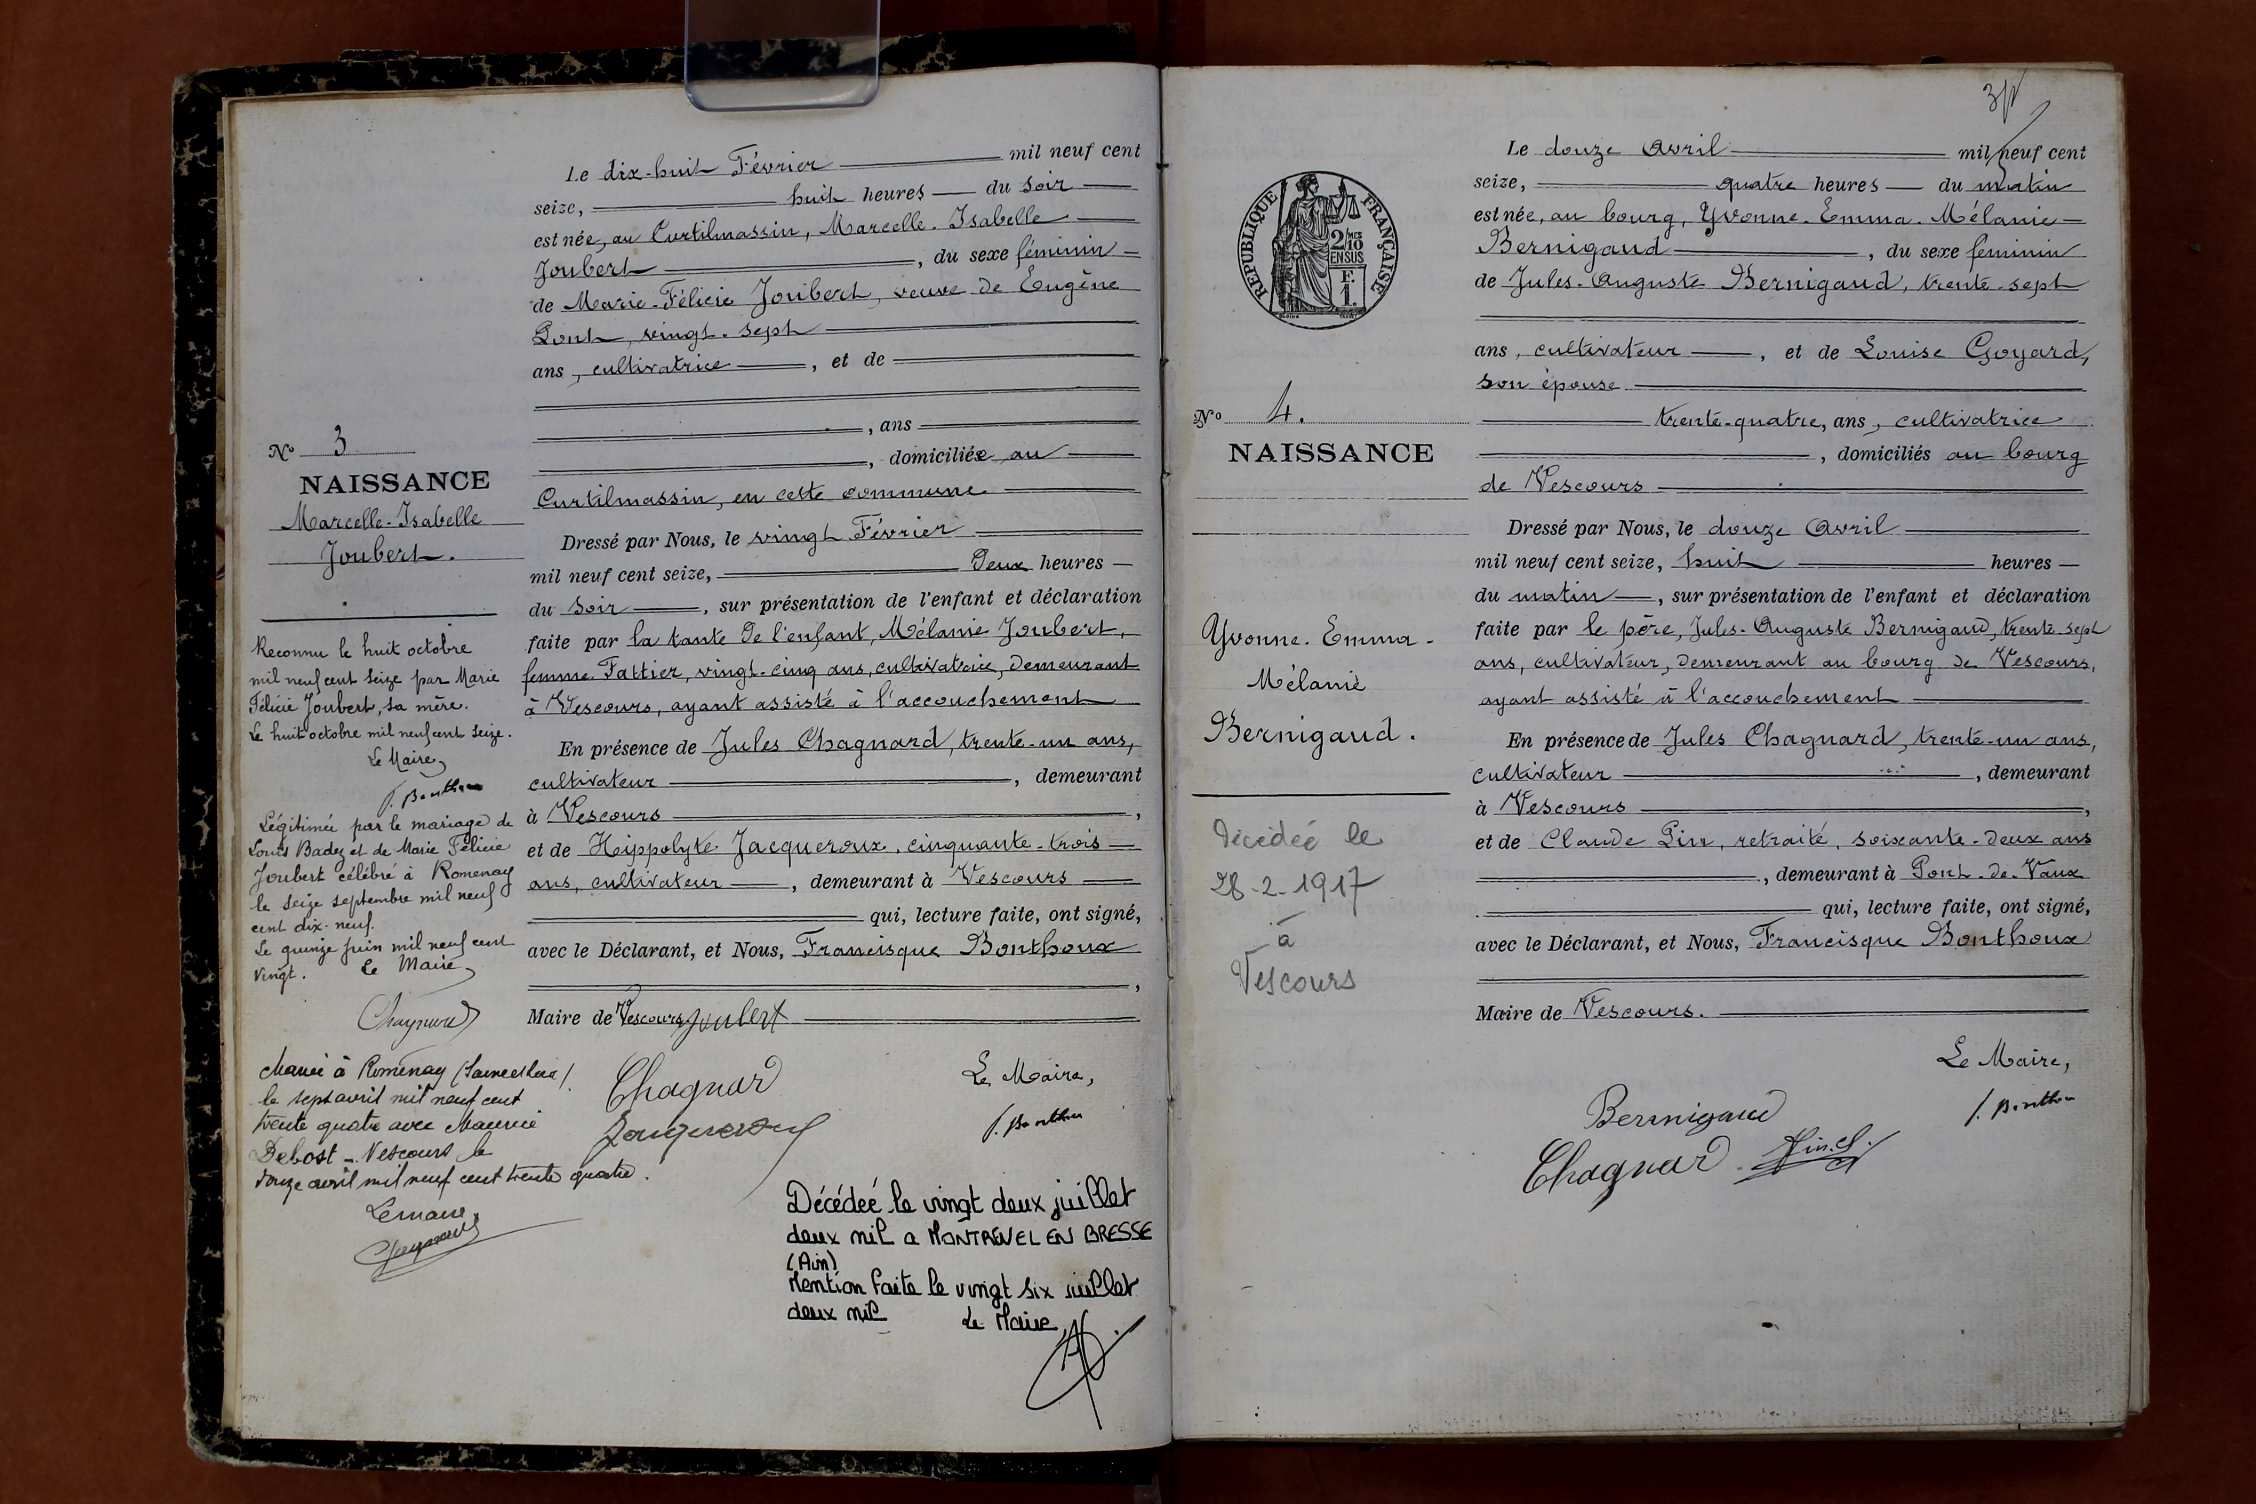 Le dix-huit Février mil neuf cent
seize, huit heures du soir
est née, au Curtilmassin, Marcelle-Isabelle
Joubert, du sexe féminin
de Marie-Félicie Joubert, veuve de Eugène
Pont, vingt-sept
ans, cultivatrice, et de
, ans
, domiciliée au
Curtilmassin, en cette commune
Dressé par Nous, le vingt Février
mil neuf cent seize, deux heures
du soir, sur présentation de l'enfant et déclaration
faite par la tante de l'enfant, Mélanie Joubert,
femme Fattier, vingt-cinq ans, cultivatrice, demeurant
à Vescours, ayant assisté à l'accouchement
En présence de Jules Chagnard, trente-un ans,
cultivateur, demeurant
à Vescours,
et de Hippolyte Jacqueroux, cinquante-trois
ans, cultivateur, demeurant à Vescours
qui, lecture faite, ont signé,
avec le Déclarant, et Nous, Francisque Bonthoux
,
Maire de Vescours. Joubert
Chagnard
Jacqueroux
Le Maire,
f. Bonthoux
Décédée le vingt deux juillet
deux mil a MONTREVEL EN BRESSE
(Ain)
Mention faite le vingt six juillet
deux mil Le Maire
No 3
NAISSANCE
Marcelle-Isabelle
Joubert.
Reconnu le huit octobre
mil neuf cent seize par Marie
Félicie Joubert, sa mère.
Le huit octobre mil neuf cent seize.
Le Maire,
f. Bonthoux
Légitimée par le mariage de
Louis Badez et de Marie Félicie
Joubert célébré à Romenay
le seize septembre mil neuf
cent dix-neuf.
Le quinze juin mil neuf cent
vingt. Le Maire,
Chagnard
Mariée à Romenay (Saône et Loire)
le sept avril mil neuf cent
trente quatre avec Maurice
Debost - Vescours le
douze avril mil neuf cent trente quatre.
Le maire,
Chagnard
RÉPUBLIQUE FRANÇAISE
2/10 MES
EN SUS
F.
1.
No 4.
NAISSANCE
Yvonne-Emma-
Mélanie
Bernigaud.
Décédée le
28-2-1917
à
Vescours
Le douze Avril mil neuf cent
seize, quatre heures du matin
est née, au bourg, Yvonne-Emma-Mélanie
Bernigaud, du sexe féminin
de Jules-Auguste Bernigaud, trente-sept
ans, cultivateur, et de Louise Goyard,
son épouse
trente-quatre, ans, cultivatrice
, domiciliés au bourg
de Vescours
Dressé par Nous, le douze Avril
mil neuf cent seize, huit heures
du matin, sur présentation de l'enfant et déclaration
faite par le père, Jules-Auguste Bernigaud, trente-sept
ans, cultivateur, demeurant au bourg de Vescours,
ayant assisté à l'accouchement
En présence de Jules Chagnard, trente-un ans,
cultivateur, demeurant
à Vescours,
et de Claude Pin, retraité, soixante-deux ans
, demeurant à Pont-de-Vaux
qui, lecture faite, ont signé,
avec le Déclarant, et Nous, Francisque Bonthoux
Maire de Vescours.
Le Maire,
f. Bonthoux
Bernigaud
Chagnard
Pin Cl.